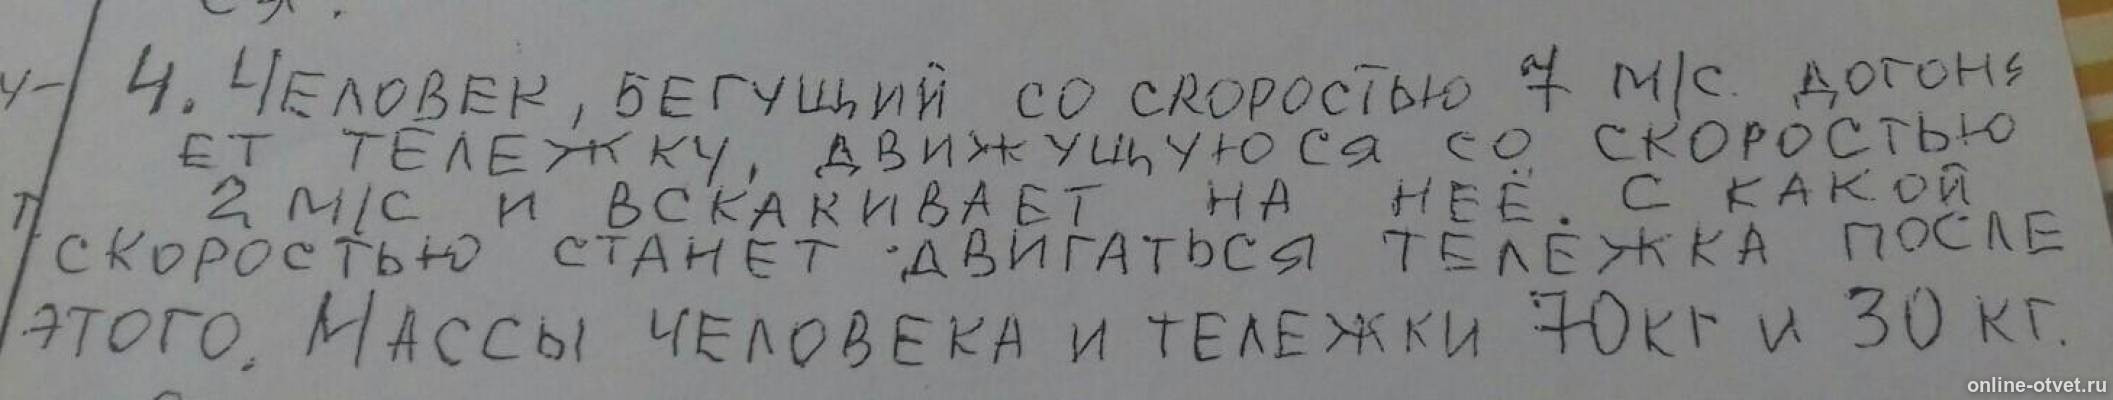 4. ЧЕЛОВЕК, БЕГУЩИЙ СО СКОРОСТЬЮ 7 М/С. ДОГОНЯ
ЕТ ТЕЛЕЖКУ, ДВИЖУЩУЮСЯ СО СКОРОСТЬЮ
2 М/С И ВСКАКИВАЕТ НА НЕЁ. С КАКОЙ
СКОРОСТЬЮ СТАНЕТ ДВИГАТЬСЯ ТЕЛЕЖКА ПОСЛЕ
ЭТОГО. МАССЫ ЧЕЛОВЕКА И ТЕЛЕЖКИ 70КГ И 30 КГ.
online-otvet.ru